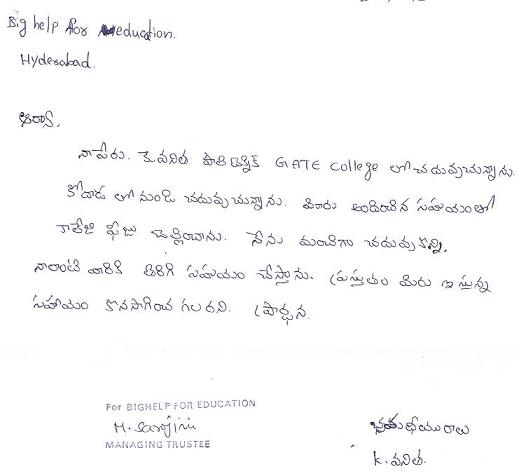 Big help for education.
Hyderabad.
సర్,
నా పేరు. కె. వనిత పాలిటెక్నిక్ GATE College లో చదువుచున్నాను.
కోదాడ లో నుండి చదువుచున్నాను. మీరు అందించిన సహయంతో
కాలేజి ఫీజు చెల్లించాను. నేను మంచిగా చదువుకొన్ని,
నాలాంటి వారికి తిరిగి సహయం చేస్తాను. ప్రస్తుతం మీరు ఇస్తున్న
సహాయం కొనసాగించ గలరని. ప్రార్థన.
For BIGHELP FOR EDUCATION
M. Sarojini
MANAGING TRUSTEE
భవదీయురాలు
K. వనిత.